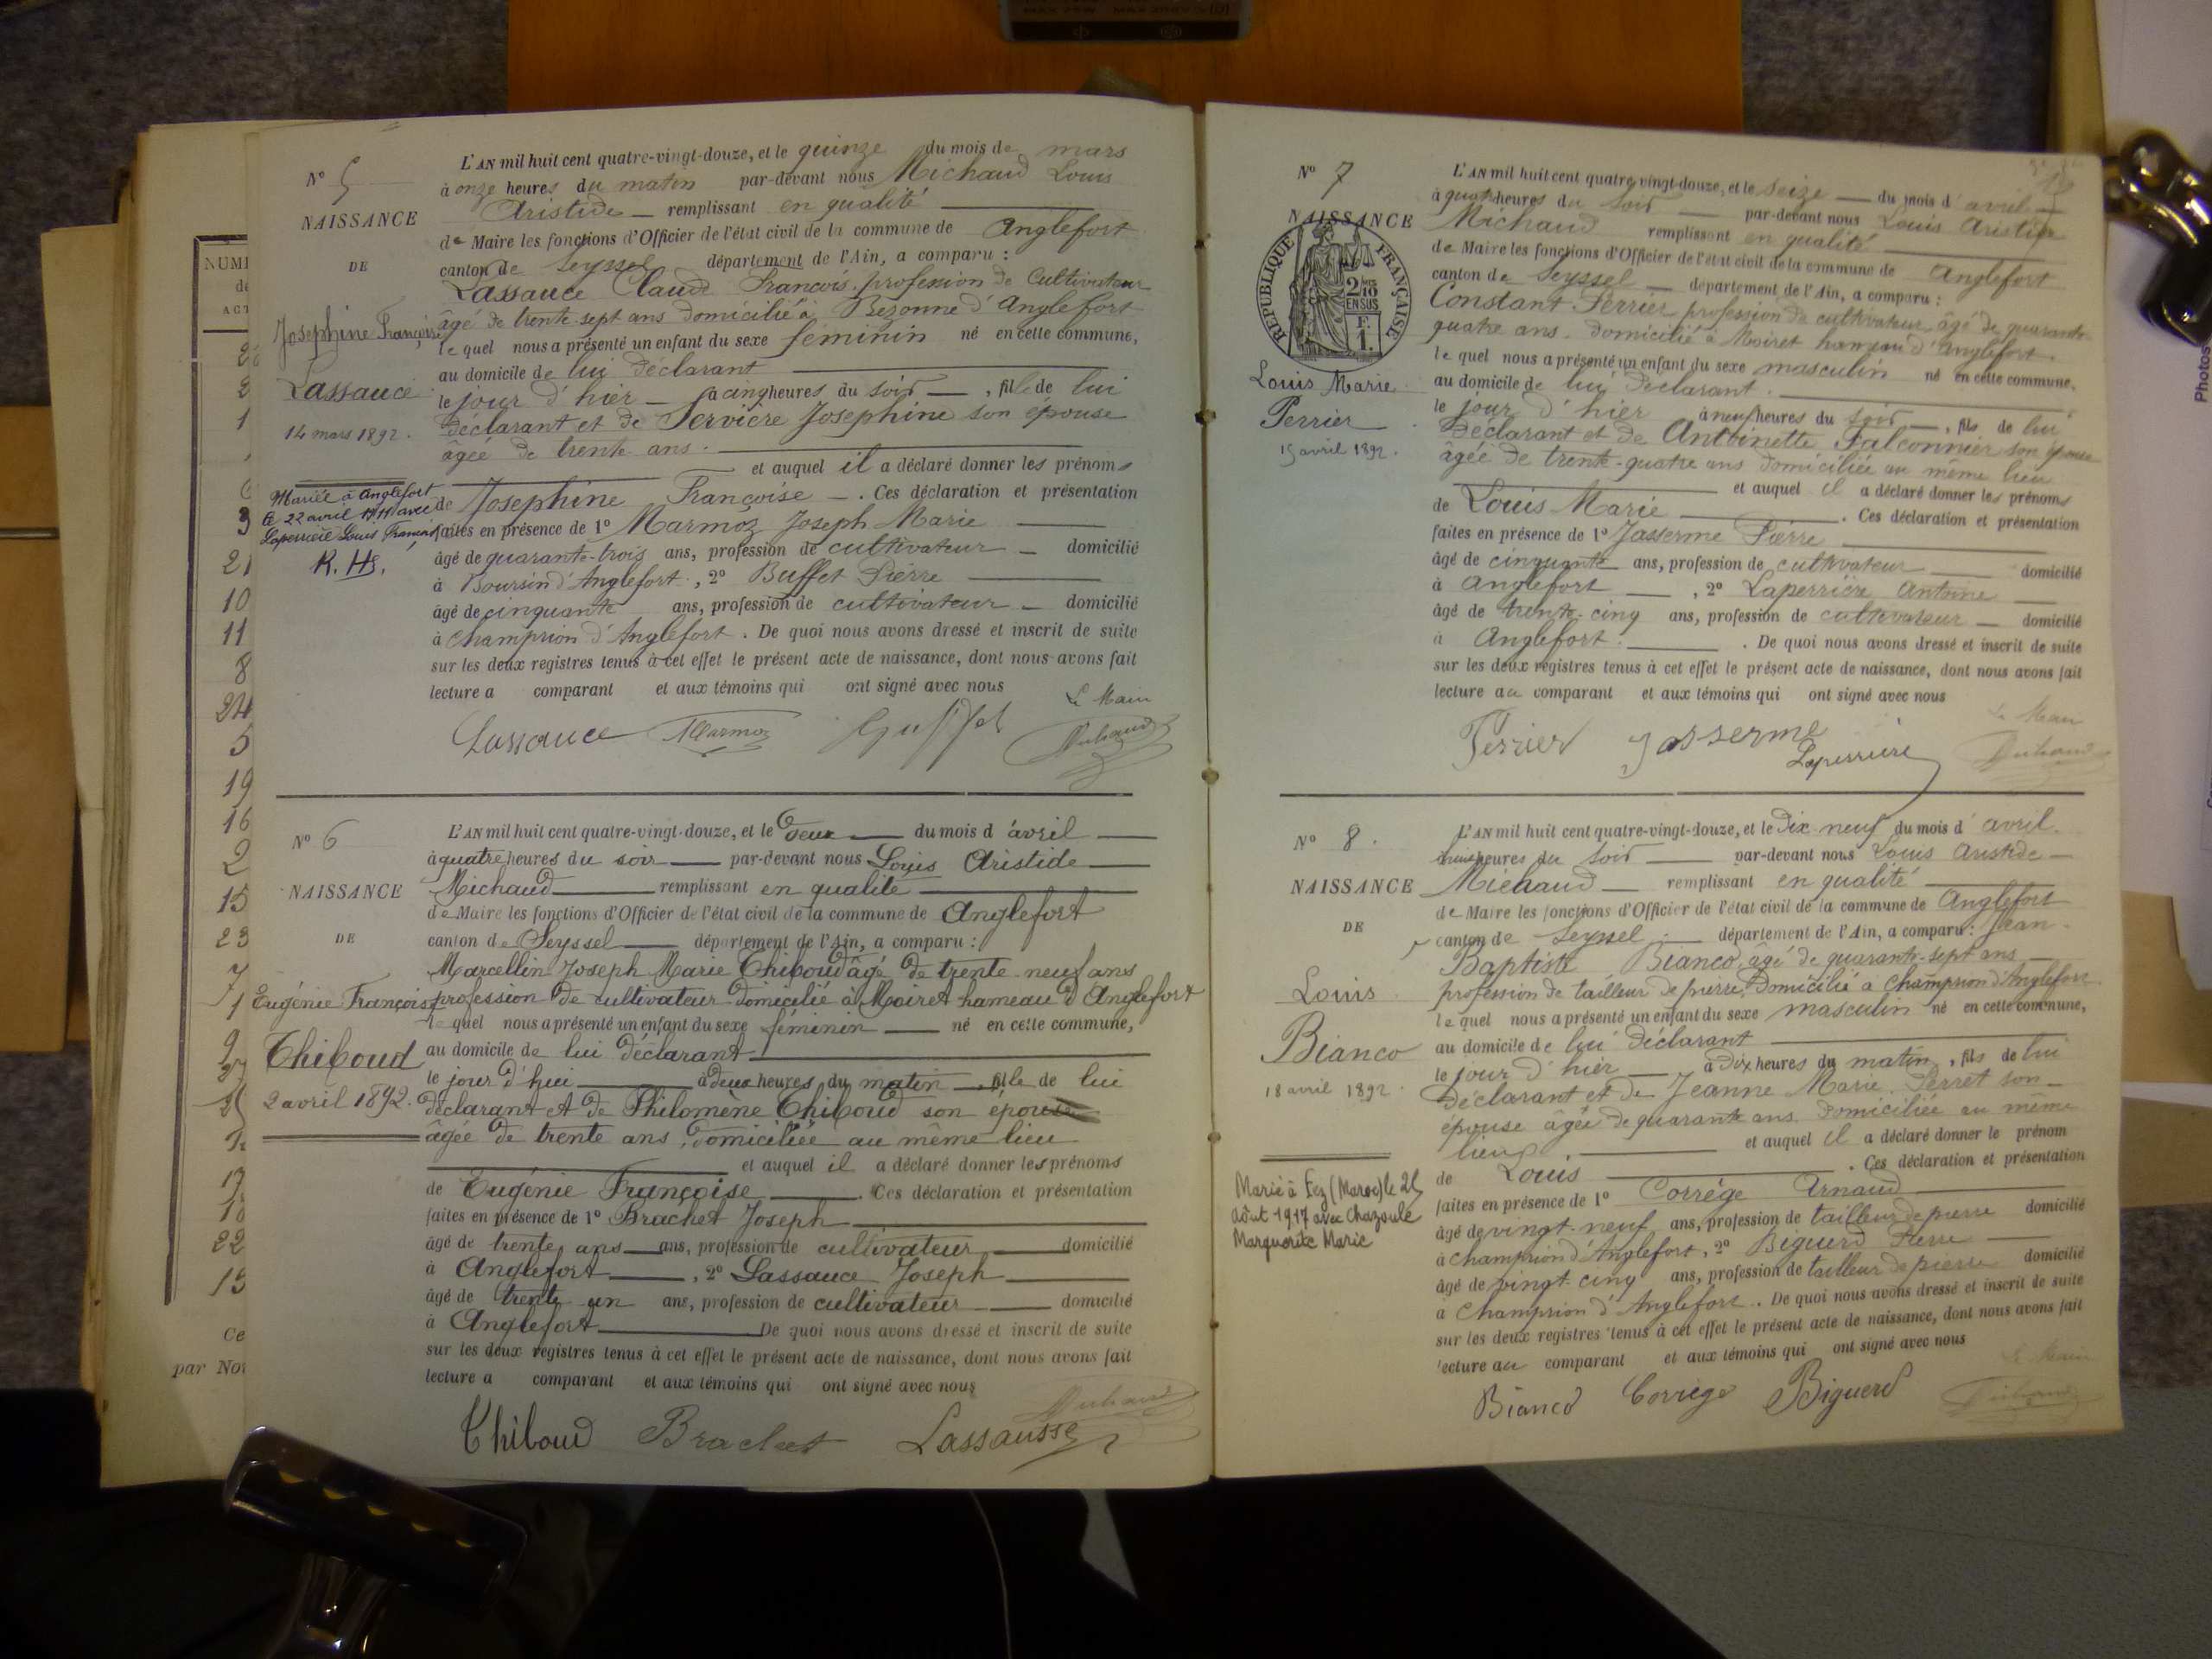 N° 5
NAISSANCE
DE
Josephine Françoise
Lassauce
14 mars 1892.
Mariée à Anglefort
le 22 avril 1911 avec
Laperrière Louis François
R. Hs.
L'AN mil huit cent quatre-vingt-douze, et le quinze du mois de mars
à onze heures du matin par-devant nous Michaud Louis
Aristide remplissant en qualité
de Maire les fonctions d'Officier de l'état civil de la commune de Anglefort
canton de Seyssel département de l'Ain, a comparu :
Lassauce Claude François, profession de Cultivateur
âgé de trente-sept ans domicilié à Bezonne d'Anglefort
lequel nous a présenté un enfant du sexe féminin né en cette commune,
au domicile de lui déclarant
le jour d'hier à cinq heures du soir, fille de lui
déclarant et de Servière Josephine son épouse
âgée de trente ans.
et auquel il a déclaré donner les prénoms
de Josephine Françoise. Ces déclaration et présentation
faites en présence de 1° Marmoz Joseph Marie
âgé de quarante-trois ans, profession de cultivateur domicilié
à Boursin d'Anglefort, 2° Buffet Pierre
âgé de cinquante ans, profession de cultivateur domicilié
à Champrion d'Anglefort. De quoi nous avons dressé et inscrit de suite
sur les deux registres tenus à cet effet le présent acte de naissance, dont nous avons fait
lecture a comparant et aux témoins qui ont signé avec nous
Le Maire
Lassauce Marmoz Buffet Michaud
N° 6
NAISSANCE
DE
Eugénie Françoise
Thiboud
2 avril 1892.
L'AN mil huit cent quatre-vingt-douze, et le deux du mois d'avril
à quatre heures du soir par-devant nous Louis Aristide
Michaud remplissant en qualité
de Maire les fonctions d'Officier de l'état civil de la commune de Anglefort
canton de Seyssel département de l'Ain, a comparu :
Marcellin Joseph Marie Thiboud âgé de trente-neuf ans
profession de cultivateur domicilié à Moiret hameau d'Anglefort
lequel nous a présenté un enfant du sexe féminin né en cette commune,
au domicile de lui déclarant
le jour d'hui à deux heures du matin, fille de lui
déclarant et de Philomène Thiboud son épouse
âgée de trente ans, domiciliée au même lieu
et auquel il a déclaré donner les prénoms
de Eugénie Françoise. Ces déclaration et présentation
faites en présence de 1° Brachet Joseph
âgé de trente ans ans, profession de cultivateur domicilié
à Anglefort, 2° Lassauce Joseph
âgé de trente un ans, profession de cultivateur domicilié
à Anglefort De quoi nous avons dressé et inscrit de suite
sur les deux registres tenus à cet effet le présent acte de naissance, dont nous avons fait
lecture a comparant et aux témoins qui ont signé avec nous
Michaud
Thiboud Brachet Lassausse
N° 7
NAISSANCE
RÉPUBLIQUE FRANÇAISE
2/10
EN SUS
F.
1.
Louis Marie
Perrier
15 avril 1892.
L'AN mil huit cent quatre-vingt-douze, et le seize du mois d'avril
à quatre heures du soir par-devant nous Louis Aristide
Michaud remplissant en qualité
de Maire les fonctions d'Officier de l'état civil de la commune de Anglefort
canton de Seyssel département de l'Ain, a comparu :
Constant Perrier profession de cultivateur âgé de quarante-
quatre ans. domicilié à Moiret hameau d'Anglefort.
lequel nous a présenté un enfant du sexe masculin né en cette commune,
au domicile de lui déclarant.
le jour d'hier à neuf heures du soir, fils de lui
déclarant et de Antoinette Falconnier son épouse
âgée de trente-quatre ans domiciliée au même lieu
et auquel il a déclaré donner les prénoms
de Louis Marie. Ces déclaration et présentation
faites en présence de 1° Jasserme Pierre
âgé de cinquante ans, profession de cultivateur domicilié
à Anglefort, 2° Laperrière Antoine
âgé de trente-cinq ans, profession de cultivateur domicilié
à Anglefort. De quoi nous avons dressé et inscrit de suite
sur les deux registres tenus à cet effet le présent acte de naissance, dont nous avons fait
lecture au comparant et aux témoins qui ont signé avec nous
Le Maire
Perrier Jasserme Laperrière Michaud
N° 8.
NAISSANCE
DE
Louis
Bianco
18 avril 1892.
Marié à Fez (Maroc) le 25
août 1917 avec Chazoule
Marguerite Marie
L'AN mil huit cent quatre-vingt-douze, et le dix-neuf du mois d'avril.
heures du soir par-devant nous Louis Aristide
Michaud remplissant en qualité
de Maire les fonctions d'Officier de l'état civil de la commune de Anglefort
canton de Seyssel département de l'Ain, a comparu : Jean-
Baptiste Bianco, âgé de quarante-sept ans
profession de tailleur de pierre, domicilié à Champrion d'Anglefort
lequel nous a présenté un enfant du sexe masculin né en cette commune,
au domicile de lui déclarant
le jour d'hier à dix heures du matin, fils de lui
déclarant et de Jeanne Marie Perret son
épouse âgée de quarante ans domiciliée au même
lieu et auquel il a déclaré donner le prénom
de Louis. Ces déclaration et présentation
faites en présence de 1° Corrége Arnaud
âgé de vingt-neuf ans, profession de tailleur de pierre domicilié
à Champrion d'Anglefort, 2° Biguerd Pierre
âgé de vingt-cinq ans, profession de tailleur de pierre domicilié
à Champrion d'Anglefort. De quoi nous avons dressé et inscrit de suite
sur les deux registres tenus à cet effet le présent acte de naissance, dont nous avons fait
lecture au comparant et aux témoins qui ont signé avec nous
Le Maire
Bianco Corrège Biguerd Michaud